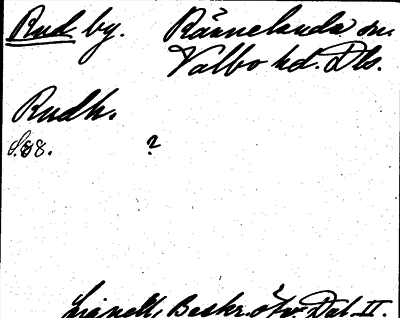 Rud by. Rännelanda sn.
Valbo hd. Dls.
Rudh.
S. 98. ?
Lignell, Beskr. öfv. Dal II.